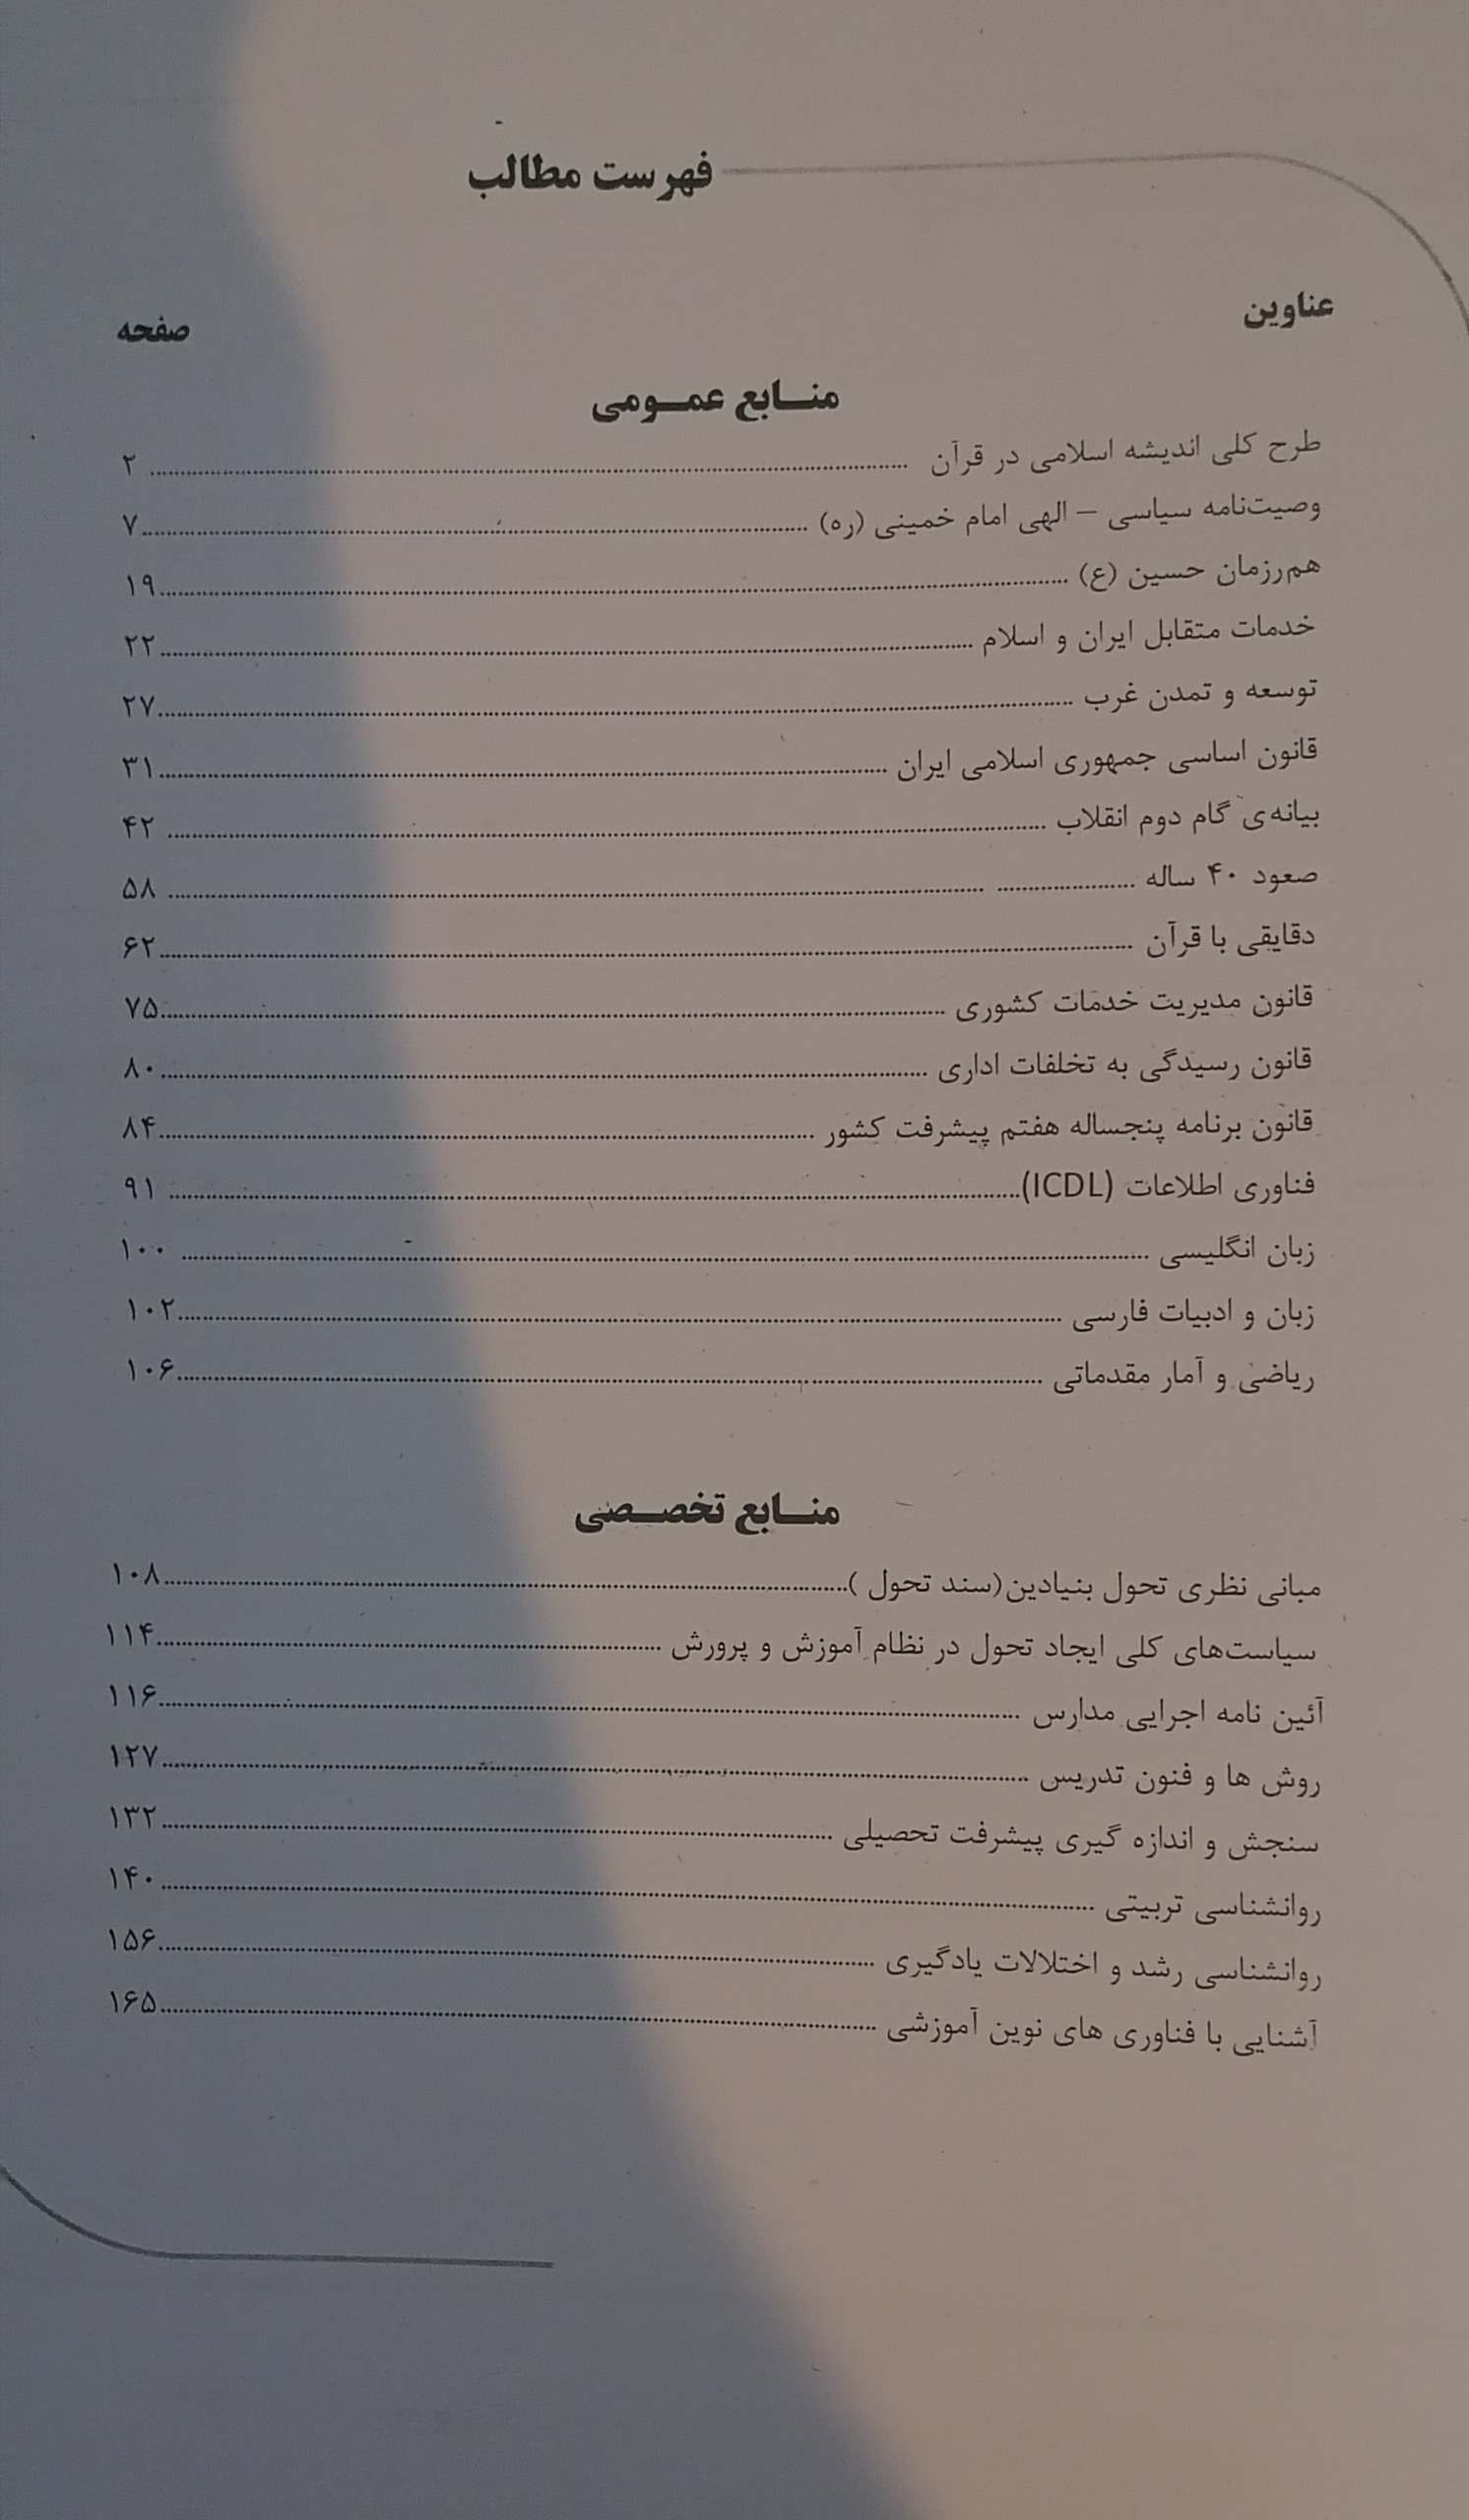 فهرست مطالب
عناوین صفحه
منابع عمومی
طرح کلی اندیشه اسلامی در قرآن ........ ۲
وصیت‌نامه سیاسی – الهی امام خمینی (ره) ........ ۷
هم‌رزمان حسین (ع) ........ ۱۹
خدمات متقابل ایران و اسلام ........ ۲۲
توسعه و تمدن غرب ........ ۲۷
قانون اساسی جمهوری اسلامی ایران ........ ۳۱
بیانه‌ی گام دوم انقلاب ........ ۴۲
صعود ۴۰ ساله ........ ۵۸
دقایقی با قرآن ........ ۶۲
قانون مدیریت خدمات کشوری ........ ۷۵
قانون رسیدگی به تخلفات اداری ........ ۸۰
قانون برنامه پنجساله هفتم پیشرفت کشور ........ ۸۴
فناوری اطلاعات (ICDL) ........ ۹۱
زبان انگلیسی ........ ۱۰۰
زبان و ادبیات فارسی ........ ۱۰۲
ریاضی و آمار مقدماتی ........ ۱۰۶
منابع تخصصی
مبانی نظری تحول بنیادین(سند تحول ) ........ ۱۰۸
سیاست‌های کلی ایجاد تحول در نظام آموزش و پرورش ........ ۱۱۴
آئین نامه اجرایی مدارس ........ ۱۱۶
روش ها و فنون تدریس ........ ۱۲۷
سنجش و اندازه گیری پیشرفت تحصیلی ........ ۱۳۲
روانشناسی تربیتی ........ ۱۴۰
روانشناسی رشد و اختلالات یادگیری ........ ۱۵۶
آشنایی با فناوری های نوین آموزشی ........ ۱۶۵